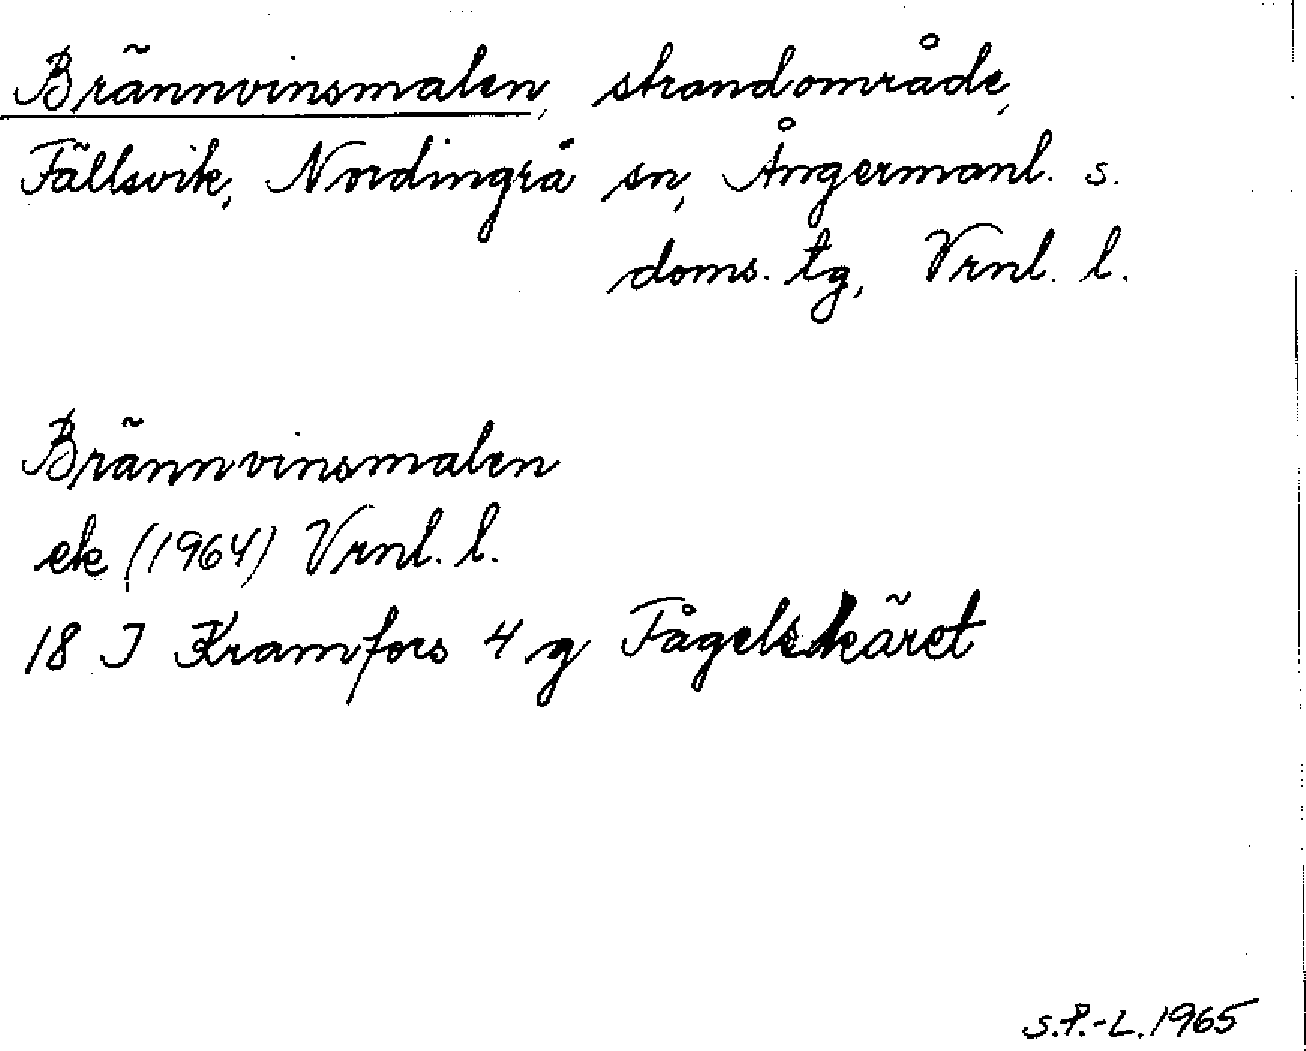 Brännvinsmalen, strandområde,
Fällsvik, Nordingrå sn, Ångermanl. s.
doms. tg, Vrnl. l.
Brännvinsmalen
ek (1964) Vrnl. l.
18 I Kramfors 4 g Fågelskäret
S.P.-L. 1965